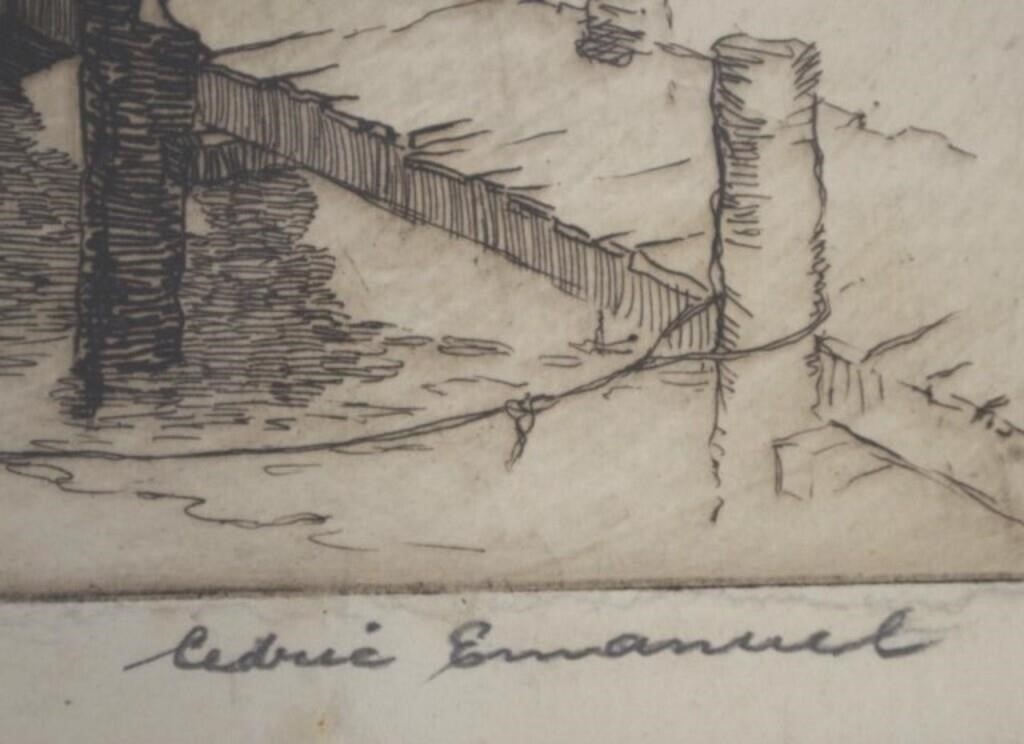 Cedric Emanuel